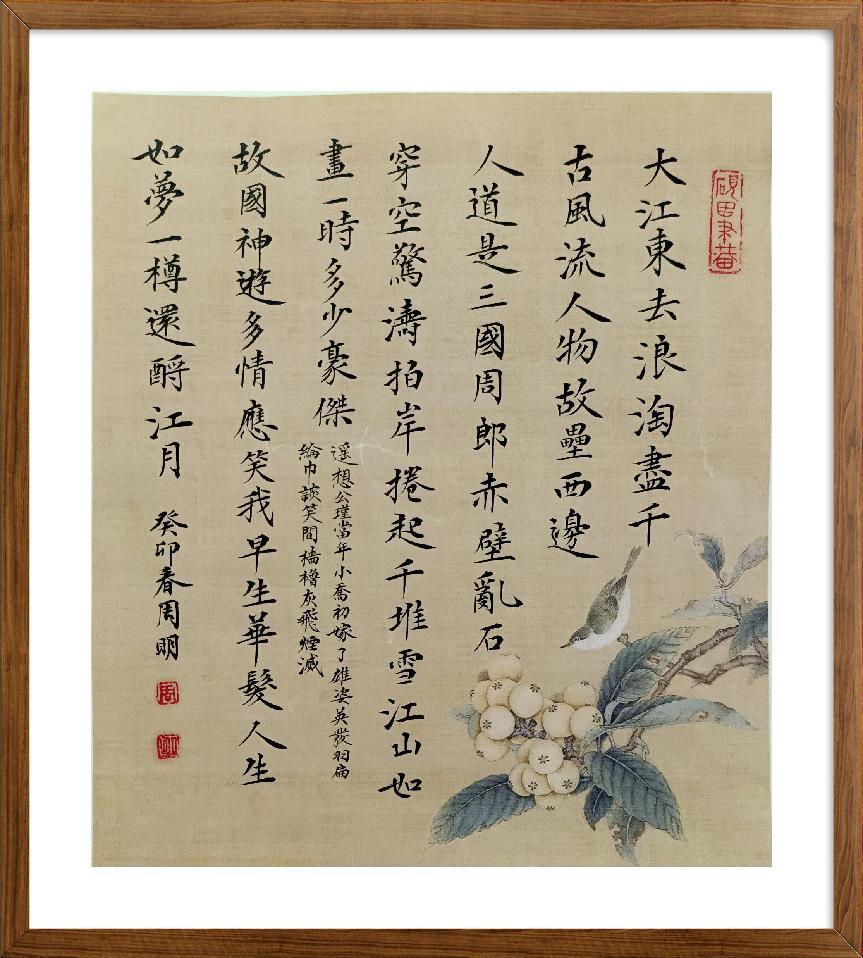 大江東去浪淘盡千
古風流人物故壘西邊
人道是三國周郎赤壁亂石
穿空驚濤拍岸捲起千堆雪江山如
畫一時多少豪傑
遥想公瑾當年小喬初嫁了雄姿英發羽扇
綸巾談笑間檣櫓灰飛煙滅
故國神遊多情應笑我早生華髮人生
如夢一樽還酹江月 癸卯春周明
周